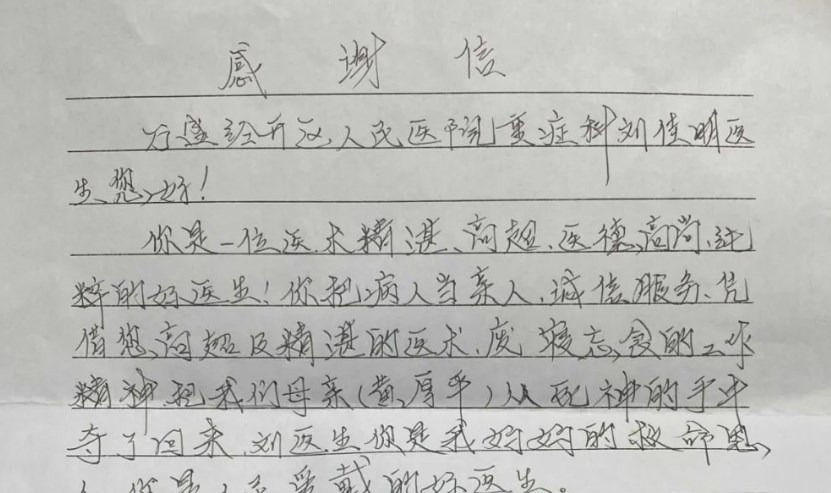 感谢信
万盛经开区人民医院重症科刘佳明医
生、您好！
你是一位医术精湛、高超、医德高尚、纯
粹的好医生！你把病人当亲人、诚信服务、凭
借您高超及精湛的医术、废寝忘食的工作
精神、把我们母亲（黄厚平）从死神的手中
夺了回来、刘医生你是我妈妈的救命恩
人、你是人民爱戴的好医生。